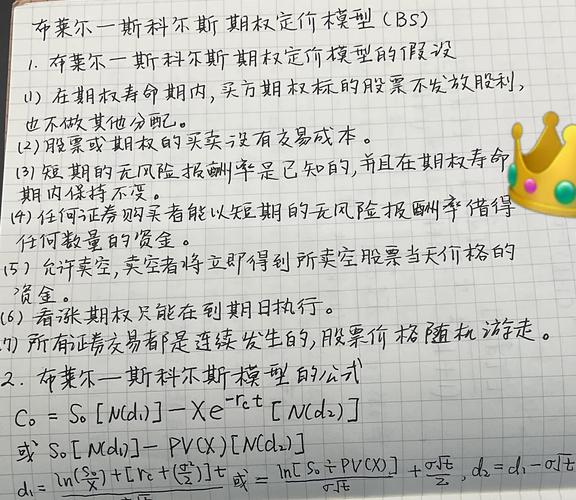 布莱尔一斯科尔斯期权定价模型(BS)
1. 布莱尔一斯科尔斯期权定价模型的假设
(1) 在期权寿命期内,买方期权标的股票不发放股利,
也不做其他分配。
(2) 股票或期权的买卖没有交易成本。
(3) 短期的无风险报酬率是已知的,并且在期权寿命
期内保持不变。
(4) 任何证券购买者能以短期的无风险报酬率借得
任何数量的资金。
(5) 允许卖空,卖空者将立即得到所卖空股票当天价格的
资金。
(6) 看涨期权只能在到期日执行。
(7) 所有证券交易都是连续发生的,股票价格随机游走。
2. 布莱尔一斯科尔斯模型的公式
C₀ = S₀[N(d₁)] - Xe^(-r_c t)[N(d₂)]
或 S₀[N(d₁)] - PV(X)[N(d₂)]
d₁ = (ln(S₀/X) + [r_c + (σ²/2)]t)/σ√t 或 = ln[S₀÷PV(X)]/σ√t + σ√t/2, d₂ = d₁ - σ√t